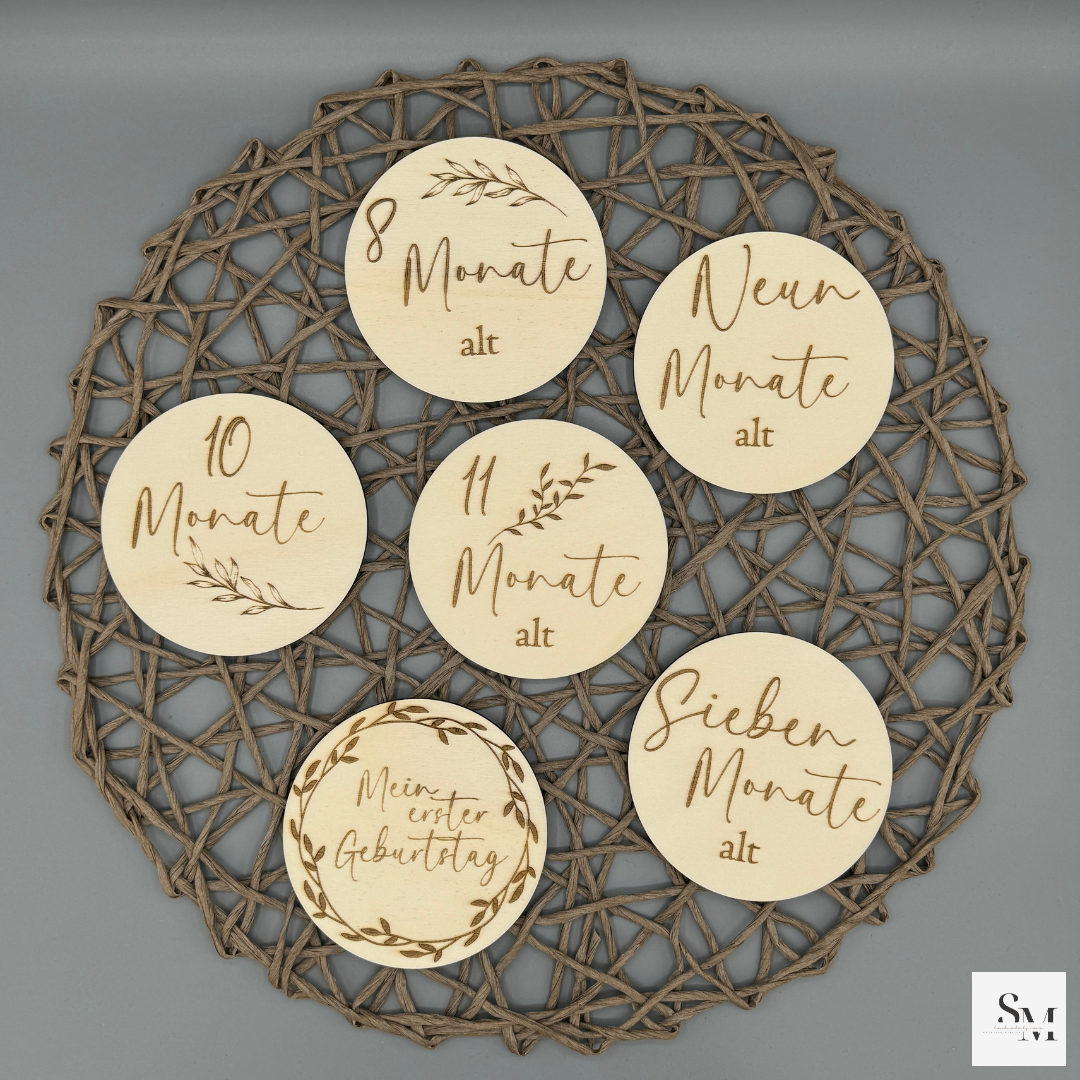 8
Monate
alt
Neun
Monate
alt
10
Monate
11
Monate
alt
Sieben
Monate
alt
Mein
erster
Geburtstag
SM